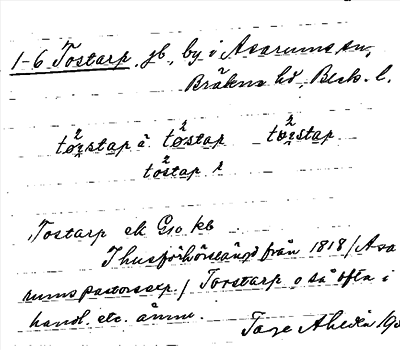 1-6 Tostarp, jb., by i Asarums sn,
Bräkne hd, Blek. l.
tøzstap å. tøstap tøzstap
tostap ?
Tostarp ek G10 kb
I husförhörslängd från 1818 / Asa
rums pastorsexp. / Torstarp o så ofta i
handl. etc. ännu.
Tage Ahldén 19